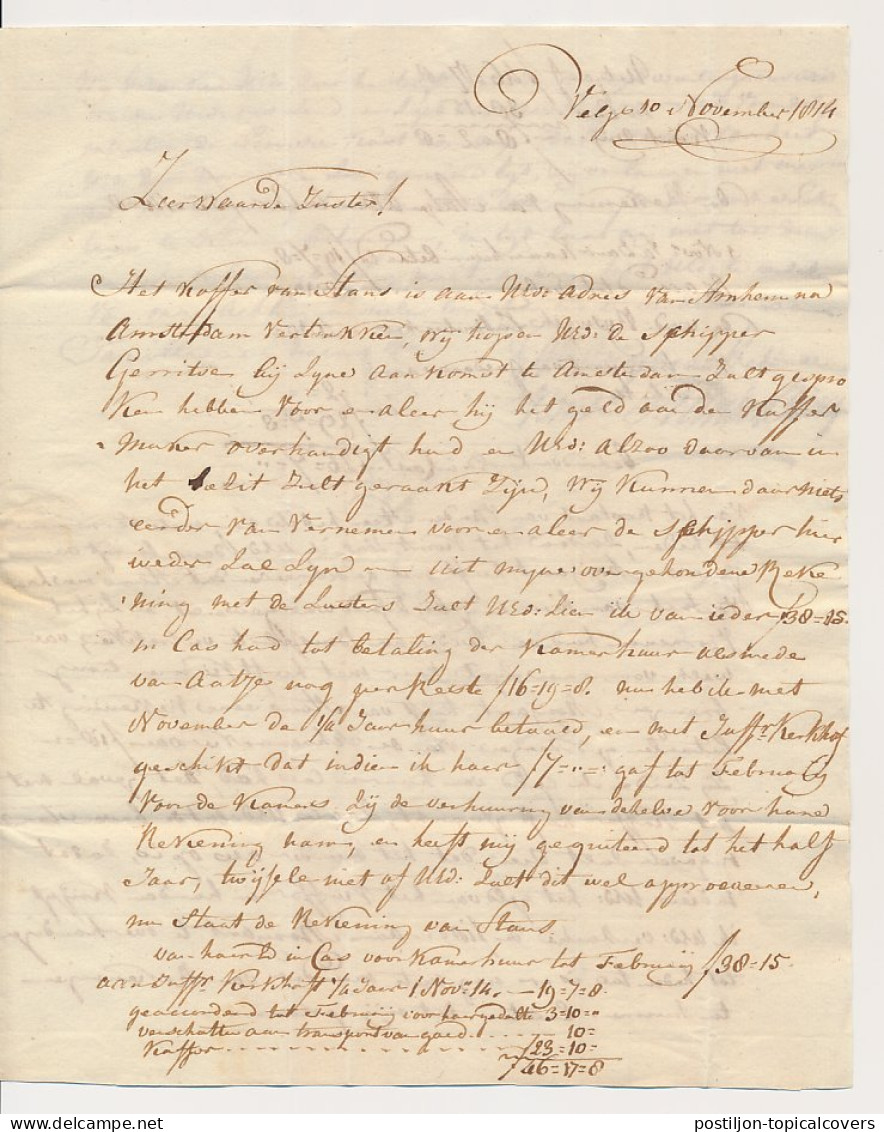 Velp 10 November 1814
Zeer Waarde Zuster!
Het Koffer van Stans is aan UEd: adres van Arnhem na
Amsterdam Vertrokken, Wij hopen UEd: de Schipper
Gerritse bij Zyne aankomst te Amsterdam Zult gespro
ken hebben voor en aleer hij het geld aan de Koffer
maker overhandigt had en UEd: alzoo daarvan in
het bezit Zult geraakt Zijn, Wij Kunnen daar niets
eerder van Vernemen voor en aleer de Schipper hier
weder Zal Zyn uit myne overgehoudene Reke
ning met de Zusters Zult UEd: Zien ik van ieder ƒ38=15.
in Cas had tot betaling der Kamerhuur alsmede
van Aatje nog per Reste ƒ16=19=8. nu heb ik met
November de 1/2 Jaar huur betaald, en met Juffr Kerkhof
geschikt dat indien ik haer ƒ7=..=: gaf tot February
voor de Kamers Zij de verhuuring van dezelve voor hare
Rekening nam, en heeft mij gequiteerd tot het half
Jaar, twijfele niet of UEd: Zult dit wel approveeren,
nu Staat de Rekening van Stans
van haer in Cas voor Kamerhuur tot Februarij ƒ38=15.
aan Juffr Kerkhoff 1/2 Jaar 1 Novr 14. — 19=7=8.
geaccordeerd tot Februarij voor haer gedeelte 3=10=»
verschotten aan transport van goed . . . . — 10=
Koffer . . . . . . . . ƒ23=10=
ƒ46=17=8
postiljon-topicalcovers